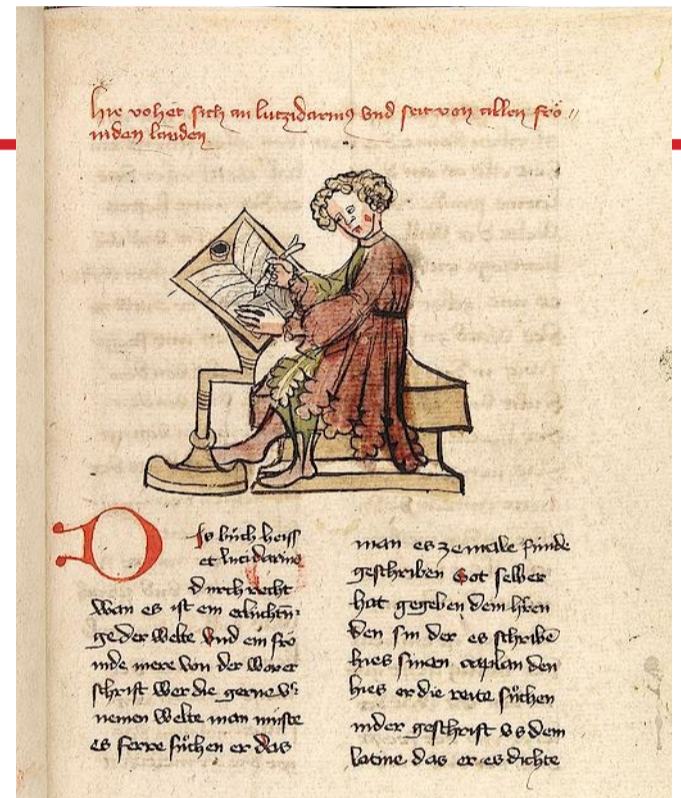 hie vohet sich an lutzidarius vnd seit von allen frö
mden landen
Dis bůch heiss
et lucidarius
durch recht
wan es ist ein erluchtū
ge der welte vnd ein frö
mde mere von der worer
schrift wer die gerne v
nemen welte man můste
es ferre sůchen er das
man es zemale funde
geschriben Got selber
hat gegeben dem hren
den sin der es schribē
hies sinen caplan den
hies er die reite sůchen
inder geschrift vs dem
latine das er es dichte